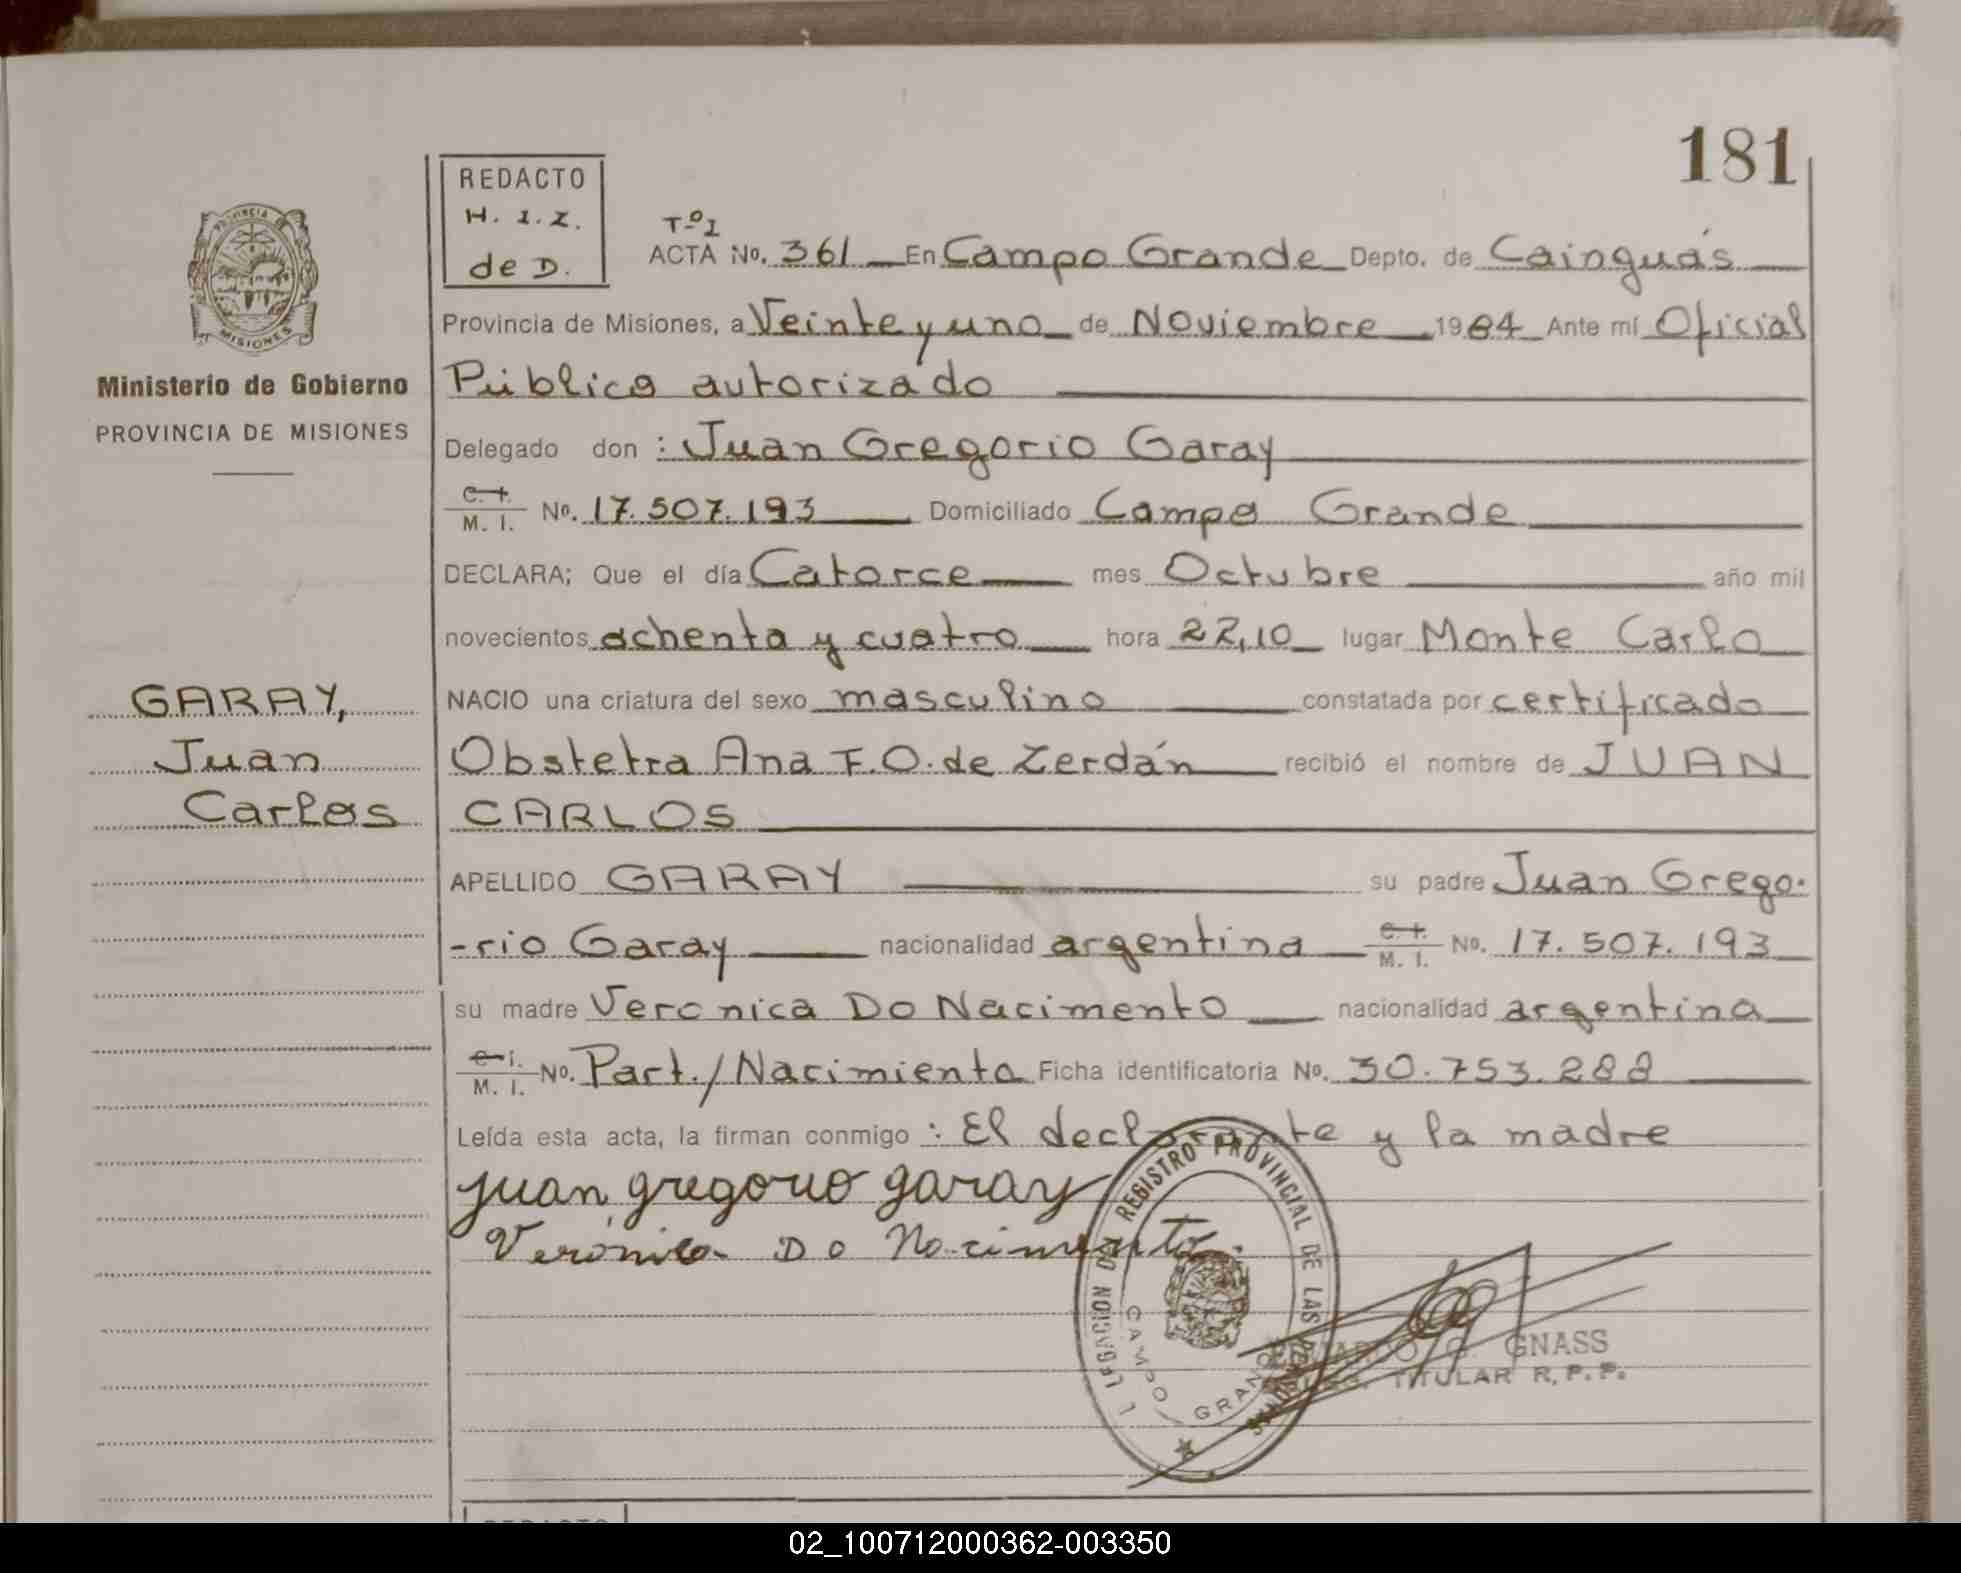 181
REDACTO
H. I. Z.
de D.
Tº1
ACTA No. 361 En Campo Grande Depto. de Cainguás
Provincia de Misiones, a Veinte y uno de Noviembre 1984 Ante mí Oficial
Público autorizado
Delegado don : Juan Gregorio Garay
C. I. M. I. No. 17.507.193 Domiciliado Campo Grande
DECLARA; Que el día Catorce mes Octubre año mil
novecientos ochenta y cuatro hora 22,10 lugar Monte Carlo
NACIO una criatura del sexo masculino constatada por certificado
Obstetra Ana F.O. de Zerdán recibió el nombre de JUAN
CARLOS
APELLIDO GARAY su padre Juan Grego-
-rio Garay nacionalidad argentina C. I. M. I. No. 17.507.193
su madre Veronica Do Nacimento nacionalidad argentina
C. I. M. I. No. Part./Nacimiento Ficha identificatoria No. 30.753.288
Leída esta acta, la firman conmigo : El declarante y la madre
juan gregorio garay
Verónica Do Nacimento
PROVINCIA DE
MISIONES
Ministerio de Gobierno
PROVINCIA DE MISIONES
GARAY,
Juan
Carlos
DELEGACION DEL REGISTRO PROVINCIAL DE LAS PERSONAS
CAMPO GRANDE
GNASS
TITULAR R. P. P.
REDACTO
02_100712000362-003350